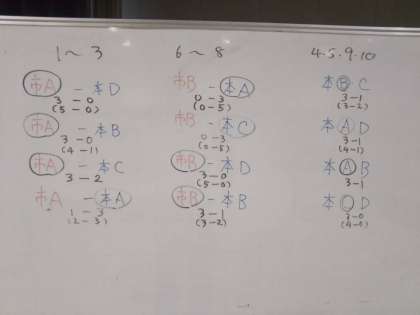 1～3
市A - 本D
3 - 0
(5 - 0)
市A - 本B
3 - 0
(4 - 1)
市A - 本C
3 - 2
市A - 本A
1 - 3
(2 - 3)
6～8
市B - 本A
0 - 3
(0 - 5)
市B - 本C
0 - 3
(0 - 5)
市B - 本D
3 - 0
(5 - 0)
市B - 本B
3 - 1
(3 - 2)
4.5.9.10
本 B C
3 - 1
(3 - 2)
本 A D
3 - 1
(4 - 1)
本 A B
3 - 1
本 D
3 - 0
(4 - 0)